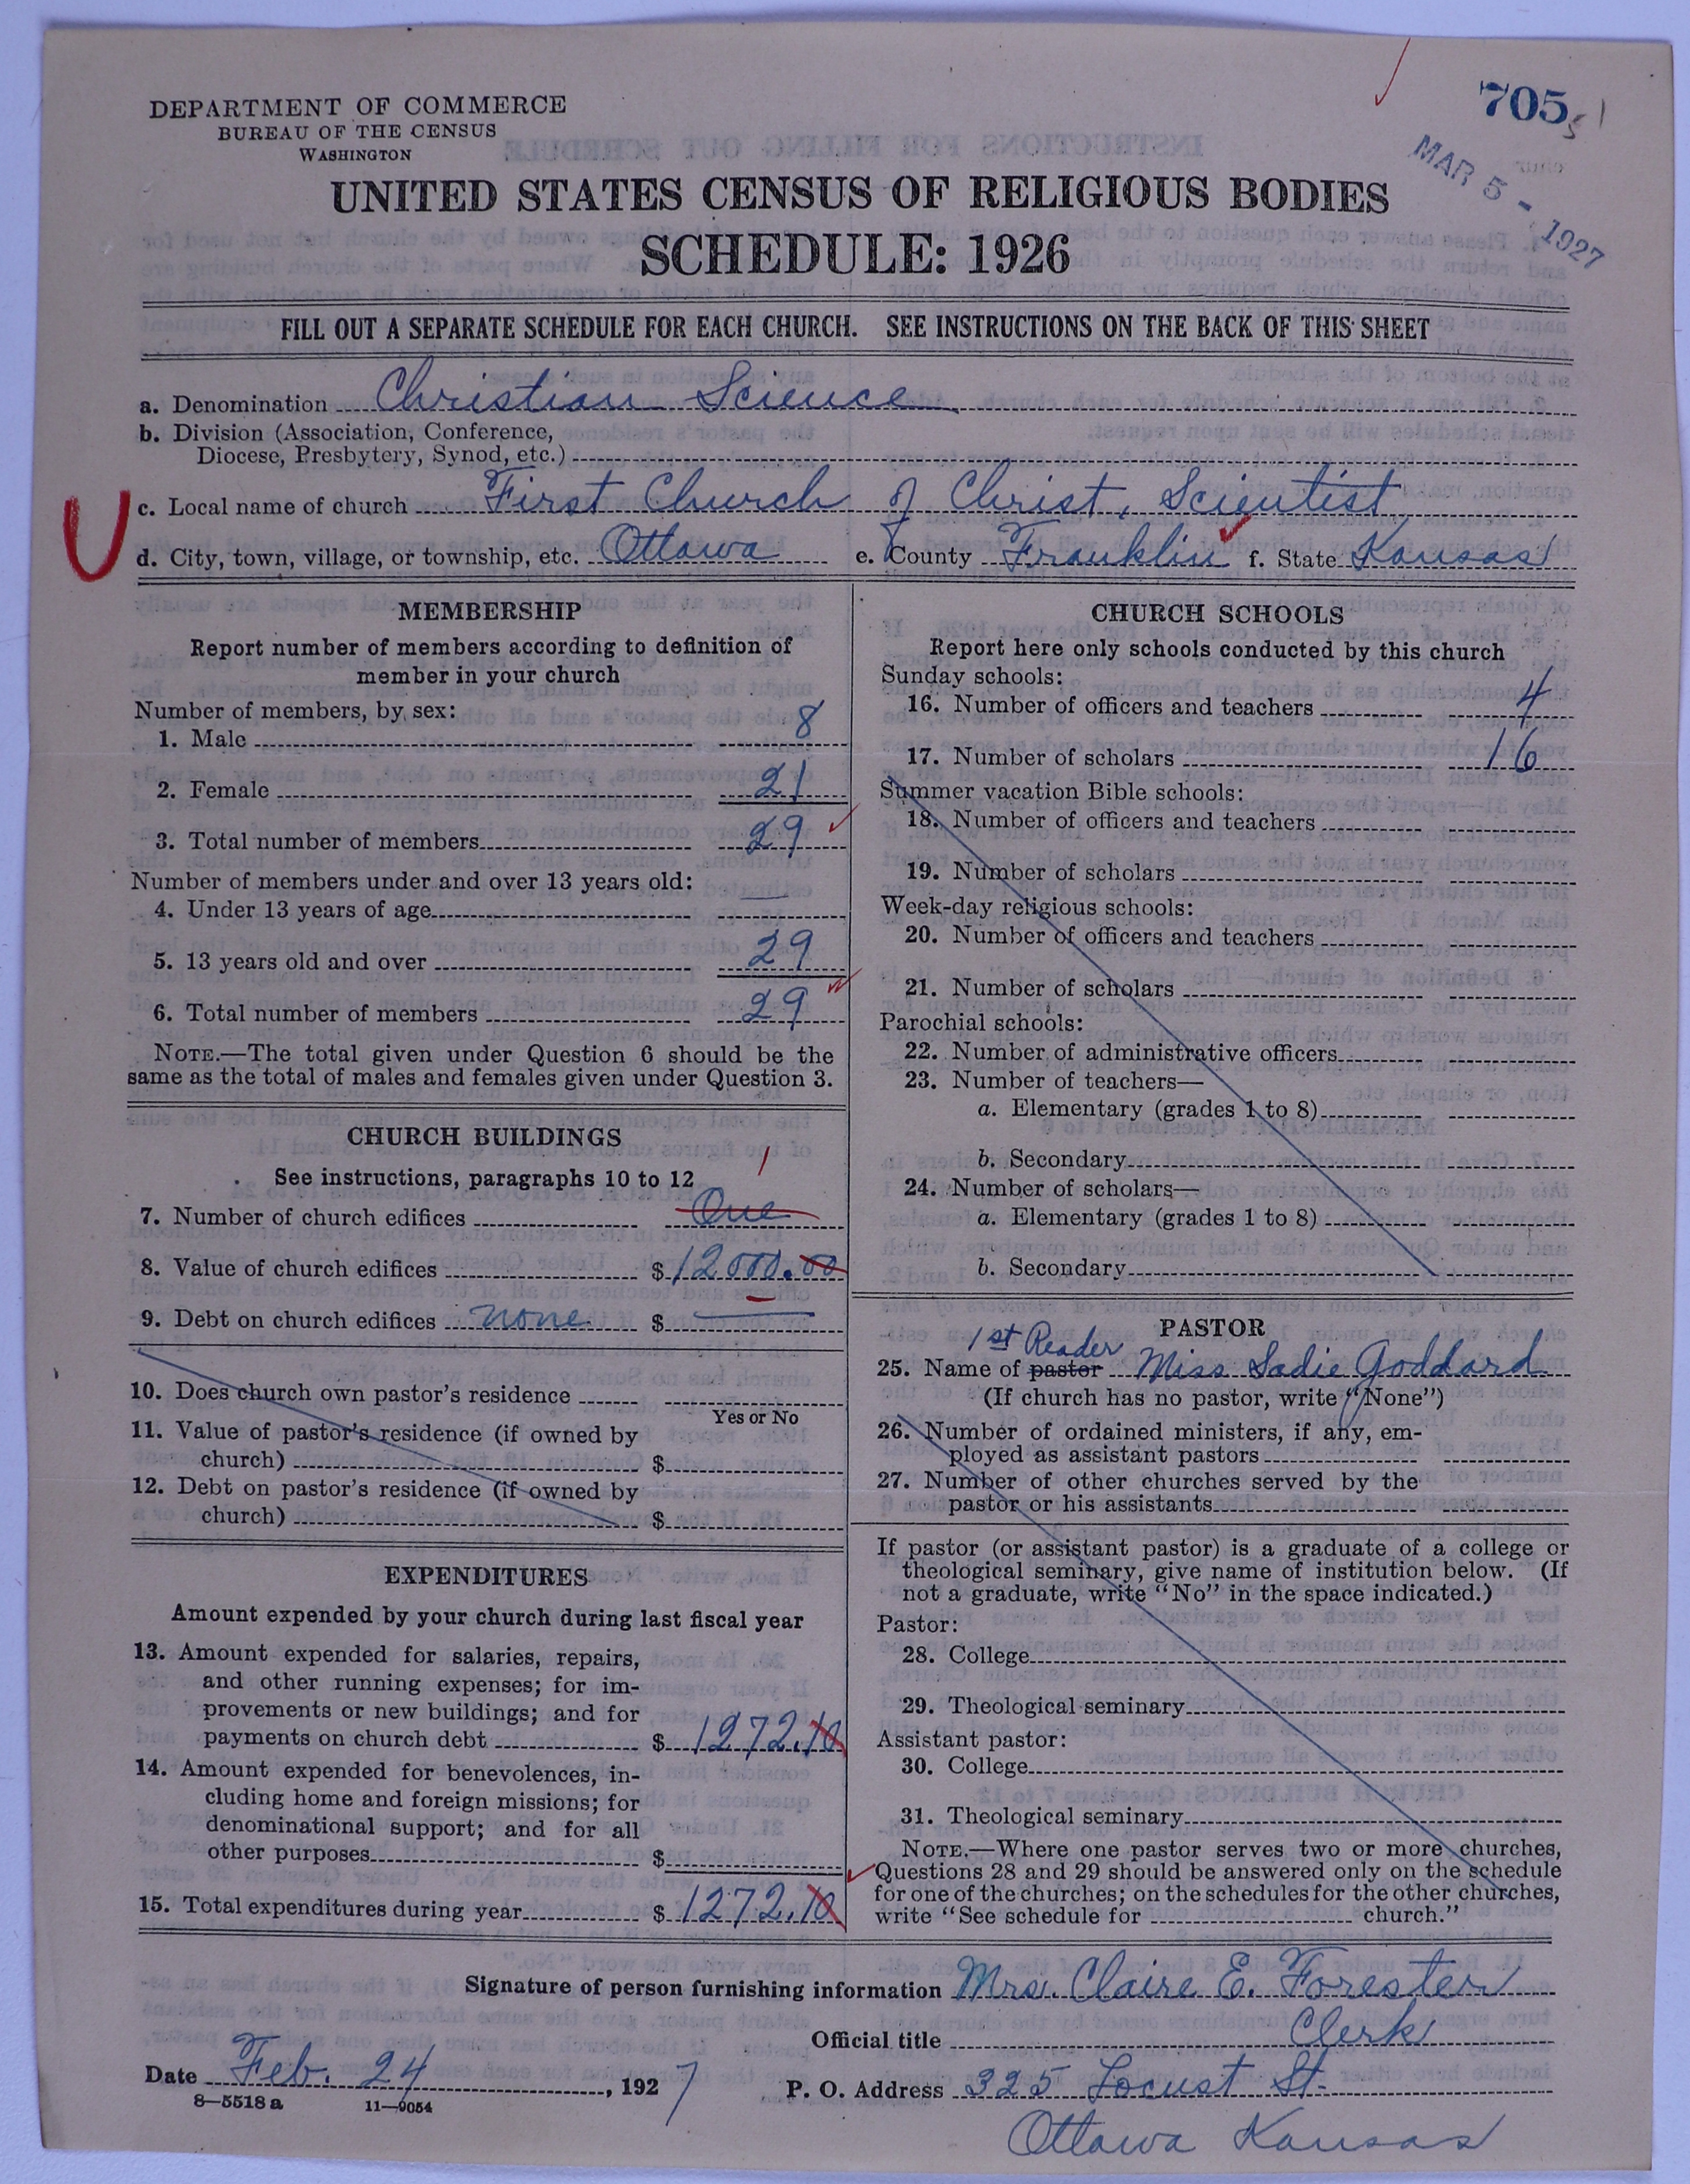 DEPARTMENT OF COMMERCE
BUREAU OF THE CENSUS
WASHINGTON
705
MAR 5 - 1927
UNITED STATES CENSUS OF RELIGIOUS BODIES
SCHEDULE: 1926
FILL OUT A SEPARATE SCHEDULE FOR EACH CHURCH. SEE INSTRUCTIONS ON THE BACK OF THIS SHEET
a. Denomination Christian Science
b. Division (Association, Conference,
Diocese, Presbytery, Synod, etc.)
c. Local name of church First Church of Christ, Scientist
d. City, town, village, or township, etc. Ottawa e. County Franklin f. State Kansas
MEMBERSHIP
Report number of members according to definition of
member in your church
Number of members, by sex:
1. Male 8
2. Female 21
3. Total number of members 29
Number of members under and over 13 years old:
4. Under 13 years of age —
5. 13 years old and over 29
6. Total number of members 29
NOTE.—The total given under Question 6 should be the
same as the total of males and females given under Question 3.
CHURCH BUILDINGS
See instructions, paragraphs 10 to 12
1
7. Number of church edifices One
8. Value of church edifices $12000.00
9. Debt on church edifices none $ —
10. Does church own pastor's residence
Yes or No
11. Value of pastor's residence (if owned by
church) $
12. Debt on pastor's residence (if owned by
church) $
EXPENDITURES
Amount expended by your church during last fiscal year
13. Amount expended for salaries, repairs,
and other running expenses; for im-
provements or new buildings; and for
payments on church debt $1272.10
14. Amount expended for benevolences, in-
cluding home and foreign missions; for
denominational support; and for all
other purposes $
15. Total expenditures during year $1272.10
CHURCH SCHOOLS
Report here only schools conducted by this church
Sunday schools:
16. Number of officers and teachers 4
17. Number of scholars 16
Summer vacation Bible schools:
18. Number of officers and teachers
19. Number of scholars
Week-day religious schools:
20. Number of officers and teachers
21. Number of scholars
Parochial schools:
22. Number of administrative officers
23. Number of teachers—
a. Elementary (grades 1 to 8)
b. Secondary
24. Number of scholars—
a. Elementary (grades 1 to 8)
b. Secondary
PASTOR
1st Reader
25. Name of pastor Miss Sadie Goddard
(If church has no pastor, write "None")
26. Number of ordained ministers, if any, em-
ployed as assistant pastors
27. Number of other churches served by the
pastor or his assistants
If pastor (or assistant pastor) is a graduate of a college or
theological seminary, give name of institution below. (If
not a graduate, write "No" in the space indicated.)
Pastor:
28. College
29. Theological seminary
Assistant pastor:
30. College
31. Theological seminary
NOTE.—Where one pastor serves two or more churches,
Questions 28 and 29 should be answered only on the schedule
for one of the churches; on the schedules for the other churches,
write "See schedule for church."
Signature of person furnishing information Mrs. Claire E. Forester
Official title Clerk
Date Feb. 24, 1927 P. O. Address 325 Locust St.
8—5518 a 11—9054
Ottawa Kansas